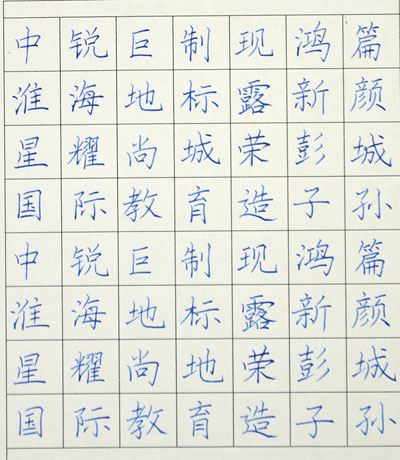 中锐巨制现鸿篇
淮海地标露新颜
星耀尚城荣彭城
国际教育造子孙
中锐巨制现鸿篇
淮海地标露新颜
星耀尚地荣彭城
国际教育造子孙